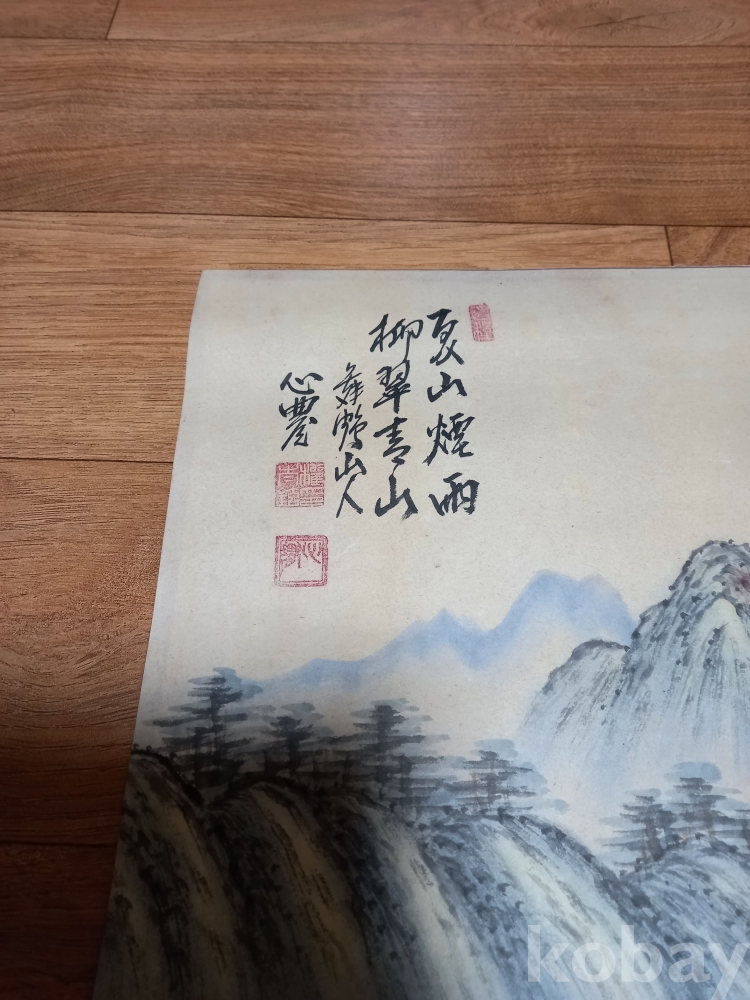 夏山煙雨
柳翠青山
舞鶴山人
心農
kobay